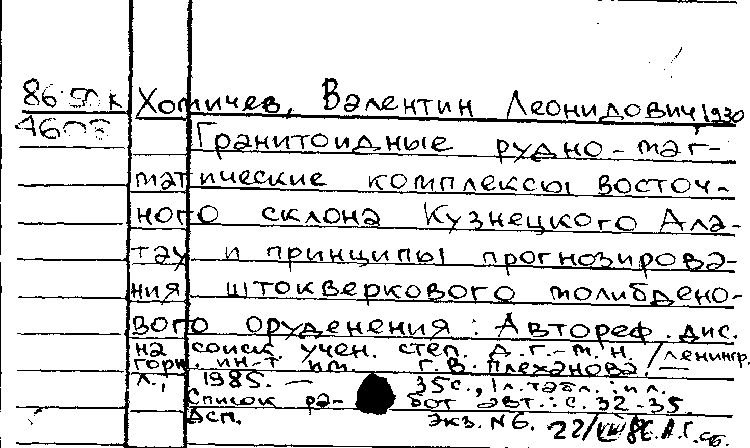 86-50К Хомичев, Валентин Леонидович, 1930
4608 Гранитоидные рудно-маг-
матические комплексы восточ-
ного склона Кузнецкого Ала-
тау и принципы прогнозирова-
ния штокверкового молибдено-
вого оруденения : Автореф. дис.
на соиск. учен. степ. д. г.-м. н. / Ленингр.
горн. ин-т им. Г. В. Плеханова. —
Л., 1985. — 35 с., 1 л. табл. : ил.
Список ра- бот авт.: с. 32-35.
Дсп. Экз. N6.